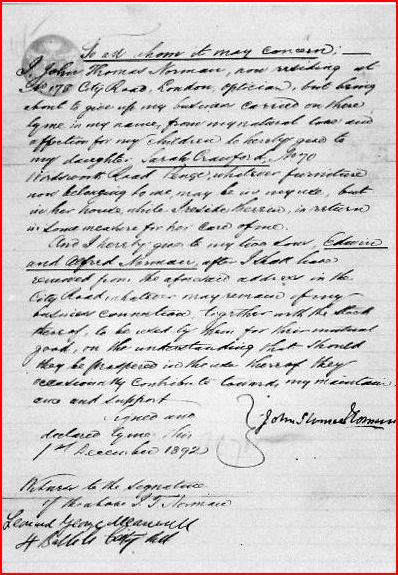 To all whom it may concern;
I, John Thomas Norman, now residing at
No 178 City Road, London, optician, but being
about to give up my business carried on there
by me in my name, from my natural love and
affection for my children do hereby give to
my daughter, Sarah Crawford, No 70
Road Penge, whatever furniture
now belonging to me, may be in my use, but
in her house, while I reside therein, in return
in some measure for her care of me.
And I hereby give to my two sons, Edwin
and Alfred Norman, after I shall have
removed from the aforesaid address in the
City Road, whatever may remain of my
business connection together with the stock
thereof, to be used by them for their mutual
good, on the understanding that should
they be prospered in the use thereof they
occasionally contribute towards my mainten
ance and support
Signed and
declared by me this
1st December 1892
John Thomas Norman
Witness to the signature
of the above J. T. Norman
Leonard George
4